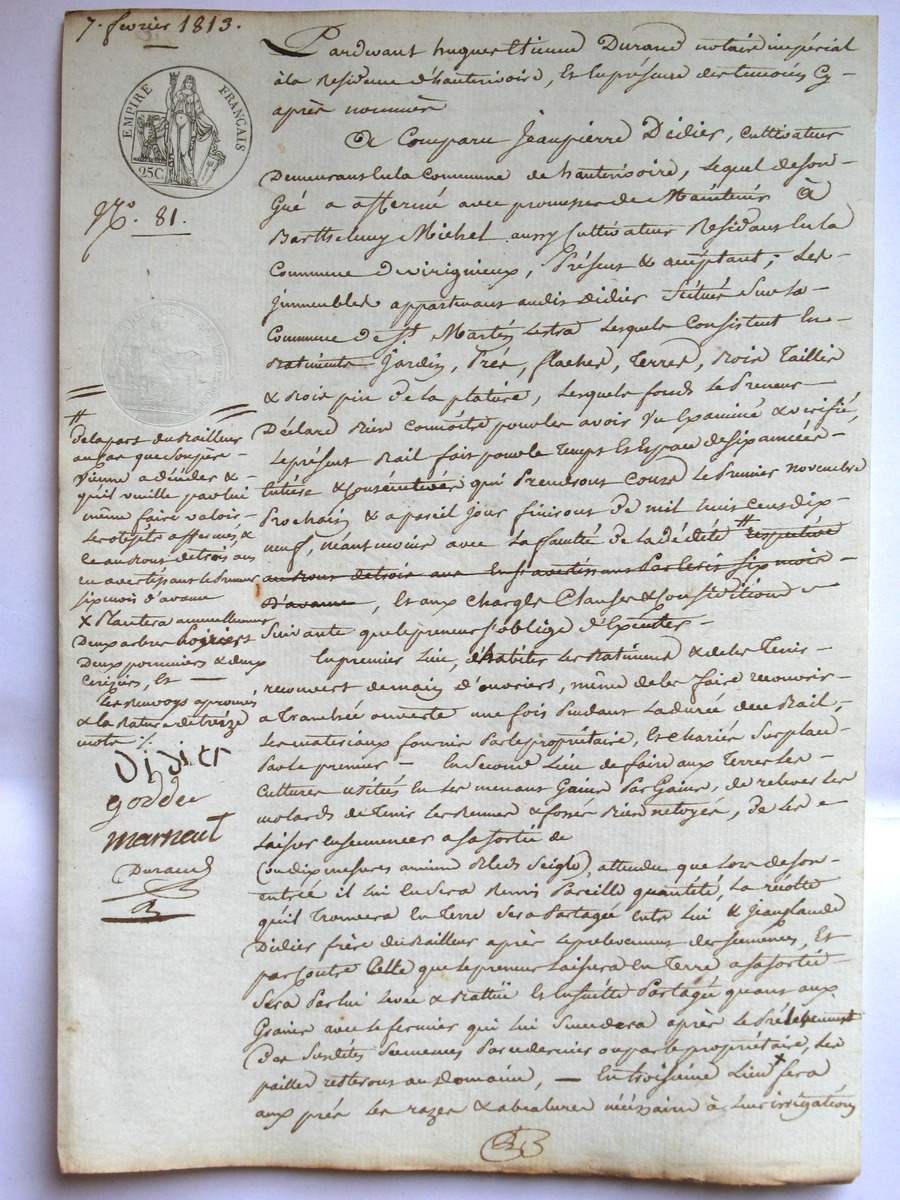 7. fevrier 1813.
EMPIRE FRANÇAIS
25C
N.o 81.
Pardevant hugues Etienne Durand notaire imperial
à la Residence d'hauterivoire, Et En présence des temoins Cy-
après nommés
A Comparu Jeanpierre Didier, Cultivateur
Demeurant En la Commune de hauterivoire, Lequel de son
Gré a affermé avec promesse de Maintenir À
Barthelemy Michel aussy Cultivateur Residant En la
Commune de virigneux, Présent & acceptant; Les
jmmeubles appartenant audit Didier Scitués Sur la
Commune de St. Martin Lestra Lesquels Consistent En
Batiments Jardin, Prés, flaches, Terres, Bois Taillis
& Bois pin De la plature, Lesquels fonds Le Preneur
Déclare Bien Connoitre pour les avoir Vu Examiné & verifié,
Le présent Bail fait pour le Temps Et Espace de six années
Entieres & Consécutives qui Prendront Cours Le Premier novembre
Prochain & a pareil jour finiront de mil huit Cent dix-
neuf, néantmoins avec La faculté de la dédite # respective
au bout de trois ans En S'avertissant Par Ecrit Six mois
D'avance, Et aux Charges Clauses & Conditions
Suivante que le preneur S'oblige d'Exécuter
En premier Lieu, d'habiter Les Batiments & de les Tenir
recouvert de main d'ouvriers, même de les faire recouvrir
a Tranchée ouverte une fois Pendant La durée du Bail,
Les materiaux fournis Par le propriétaire, Et chariés Sur place
Par le premier — En Second Lieu de faire aux Terres Les
Cultures usitées En Les menant Gaine Par Gaine, de relever Les
molards de Tenir Les & fossés Bien netoyés, De Les
Laisser Ensemencés a Sa Sortie de
(ou dix mesures Bleds Seigle), attendu que Lors de son
entrée il lui En Sera Remis Pareille quantité, La récolte
qu'il Trouvera En Terre Sera Partagée Entre Lui & Jean Claude
Didier frère du Bailleur après Le prelevement des Semences, Et
par Contre Celle que le preneur Laissera En Terre a Sa Sortie
Sera Par lui Levée & Battüe Et Ensuite Partagée quant aux
Grains avec le fermier qui Lui Succedera après Le Prélevement
Des Susdites Semences Par ce dernier ou par le propriétaire, Les
pailles resteront au Domaine, — En troisième Lieu x fera
aux prés Les razes & abreuures nécéssaire à Leur irrigation
# De la part du Bailleur
au Cas que Son père
vienne a décéder &
qu'il veuille par lui
même faire valoir
Les objets affermés, &
Ce au bout de trois ans
En avertissant le Preneur
Six mois d'avance
x & Plantera annuellement
Deux arbres poiriers
Deux pommiers & deux
Cerisiers, Et —
Les Renvoys aprouvés
& la Rature de treize
mots ./.
Didier
godde
marnaut
Durand